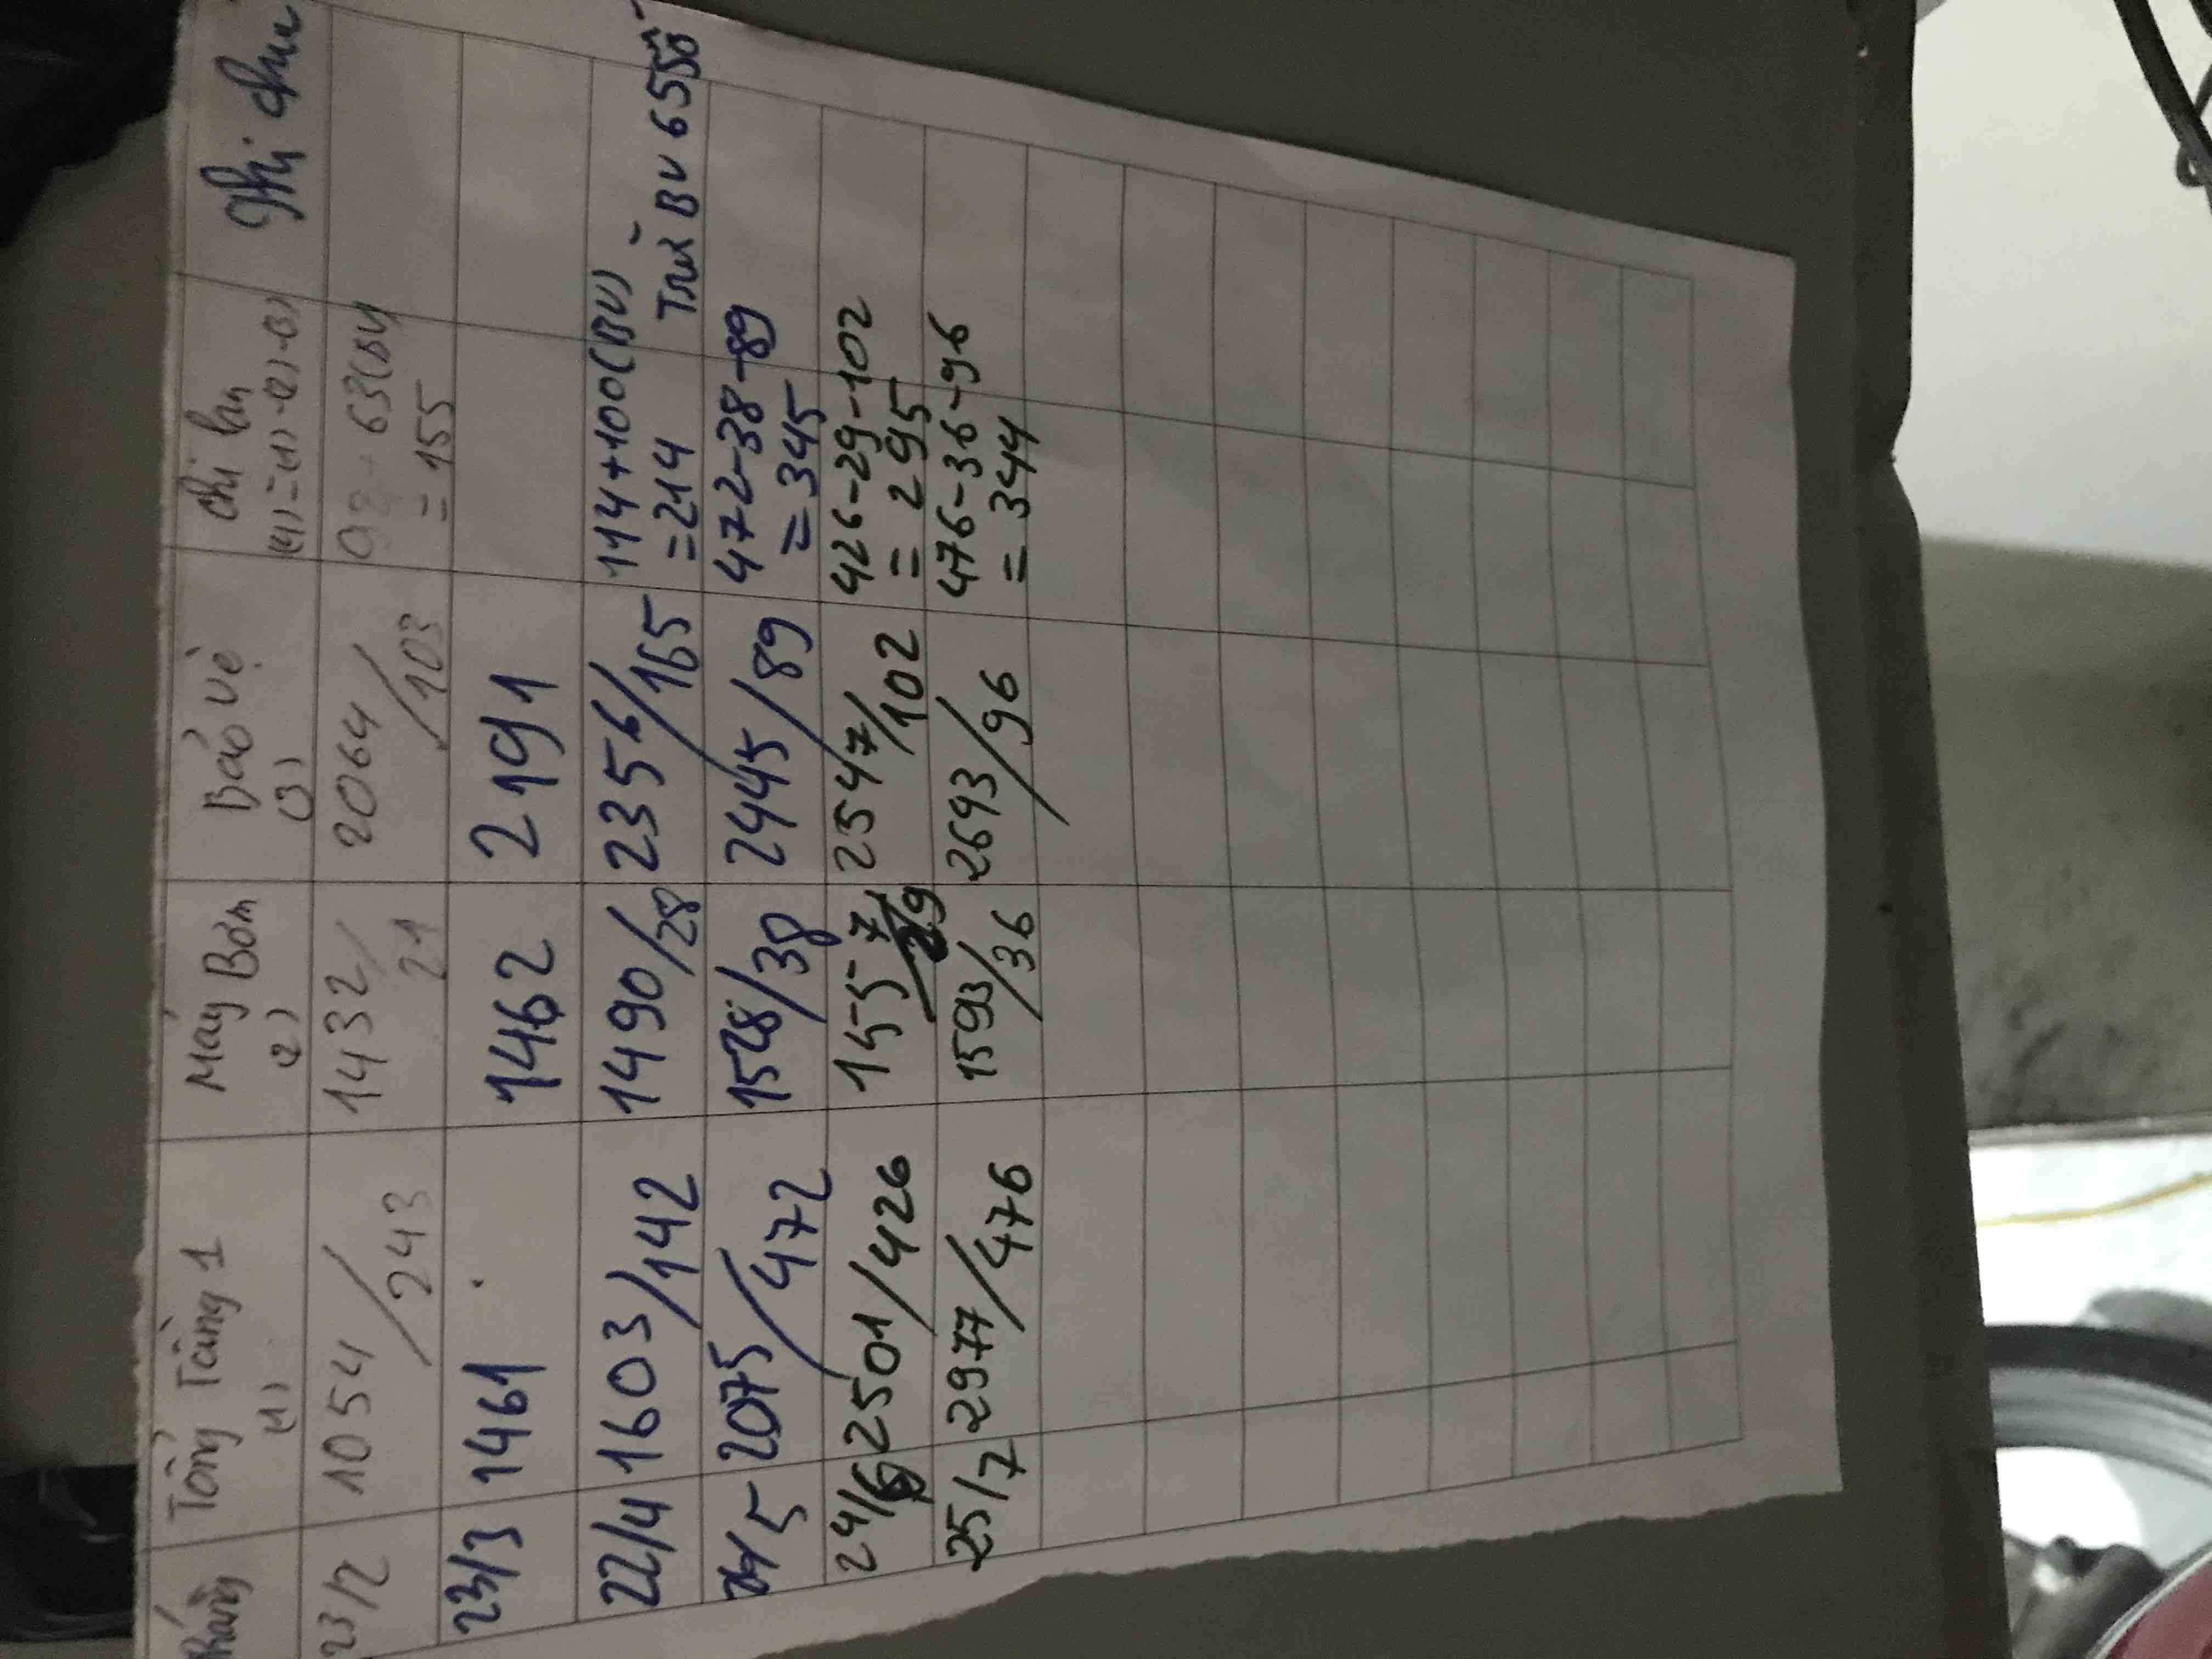 Tháng Tổng Tầng 1 Máy Bơm Bảo vệ Chi Lan Ghi chú
(1) (2) (3) (4)=(1)-(2)-(3)
23/2 1054/243 1432/21 2064/103 92+63(BV)
=155
23/3 1461 1462 2191
22/4 1603/142 1490/28 2356/165 114+100(BV)
=214 Trừ BV 65 số
/5 2075/472 1528/38 2445/89 472-38-89
=345
24/6 2501/426 1557/29 2547/102 426-29-102
=295
25/7 2977/476 1593/36 2693/96 476-36-96
=344